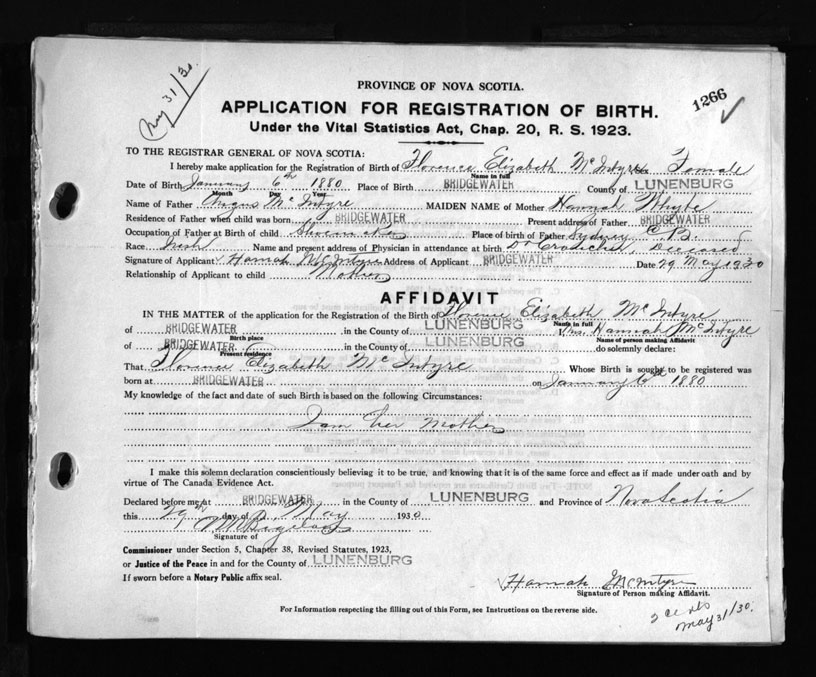 May 31/30
PROVINCE OF NOVA SCOTIA.
1266
APPLICATION FOR REGISTRATION OF BIRTH.
Under the Vital Statistics Act, Chap. 20, R. S. 1923.
TO THE REGISTRAR GENERAL OF NOVA SCOTIA:
I hereby make application for the Registration of Birth of Florence Elizabeth McIntyre Female
Name in full
Date of Birth January 6th 1880 Place of Birth BRIDGEWATER County of LUNENBURG
Month Day Year
Name of Father Angus McIntyre MAIDEN NAME of Mother Hannah Whyte
Residence of Father when child was born BRIDGEWATER Present address of Father BRIDGEWATER
Occupation of Father at Birth Shoemaker Place of birth of Father Sydney C.B.
Race Irish Name and present address of Physician in attendance at birth Dr Deceased
Signature of Applicant Hannah McIntyre Address of Applicant BRIDGEWATER Date 29 May 1930
Relationship of Applicant to child Mother
AFFIDAVIT
IN THE MATTER of the application for the Registration of the Birth of Florence Elizabeth McIntyre
Name in full
of BRIDGEWATER in the County of LUNENBURG Mrs. Hannah McIntyre
Birth place Name of person making Affidavit
of BRIDGEWATER in the County of LUNENBURG do solemnly declare:
Present residence
That Florence Elizabeth McIntyre Whose Birth is sought to be registered was
born at BRIDGEWATER on January 6th 1880
My knowledge of the fact and date of such Birth is based on the following Circumstances:
I am her mother
I make this solemn declaration conscientiously believing it to be true, and knowing that it is of the same force and effect as if made under oath and by
virtue of The Canada Evidence Act.
Declared before me at BRIDGEWATER in the County of LUNENBURG and Province of Nova Scotia
this 29th day of May 1930
Signature of
Commissioner under Section 5, Chapter 38, Revised Statutes, 1923,
or Justice of the Peace in and for the County of LUNENBURG
If sworn before a Notary Public affix seal.
Hannah McIntyre
Signature of Person making Affidavit.
For Information respecting the filling out of this Form, see Instructions on the reverse side.
May 31/30.